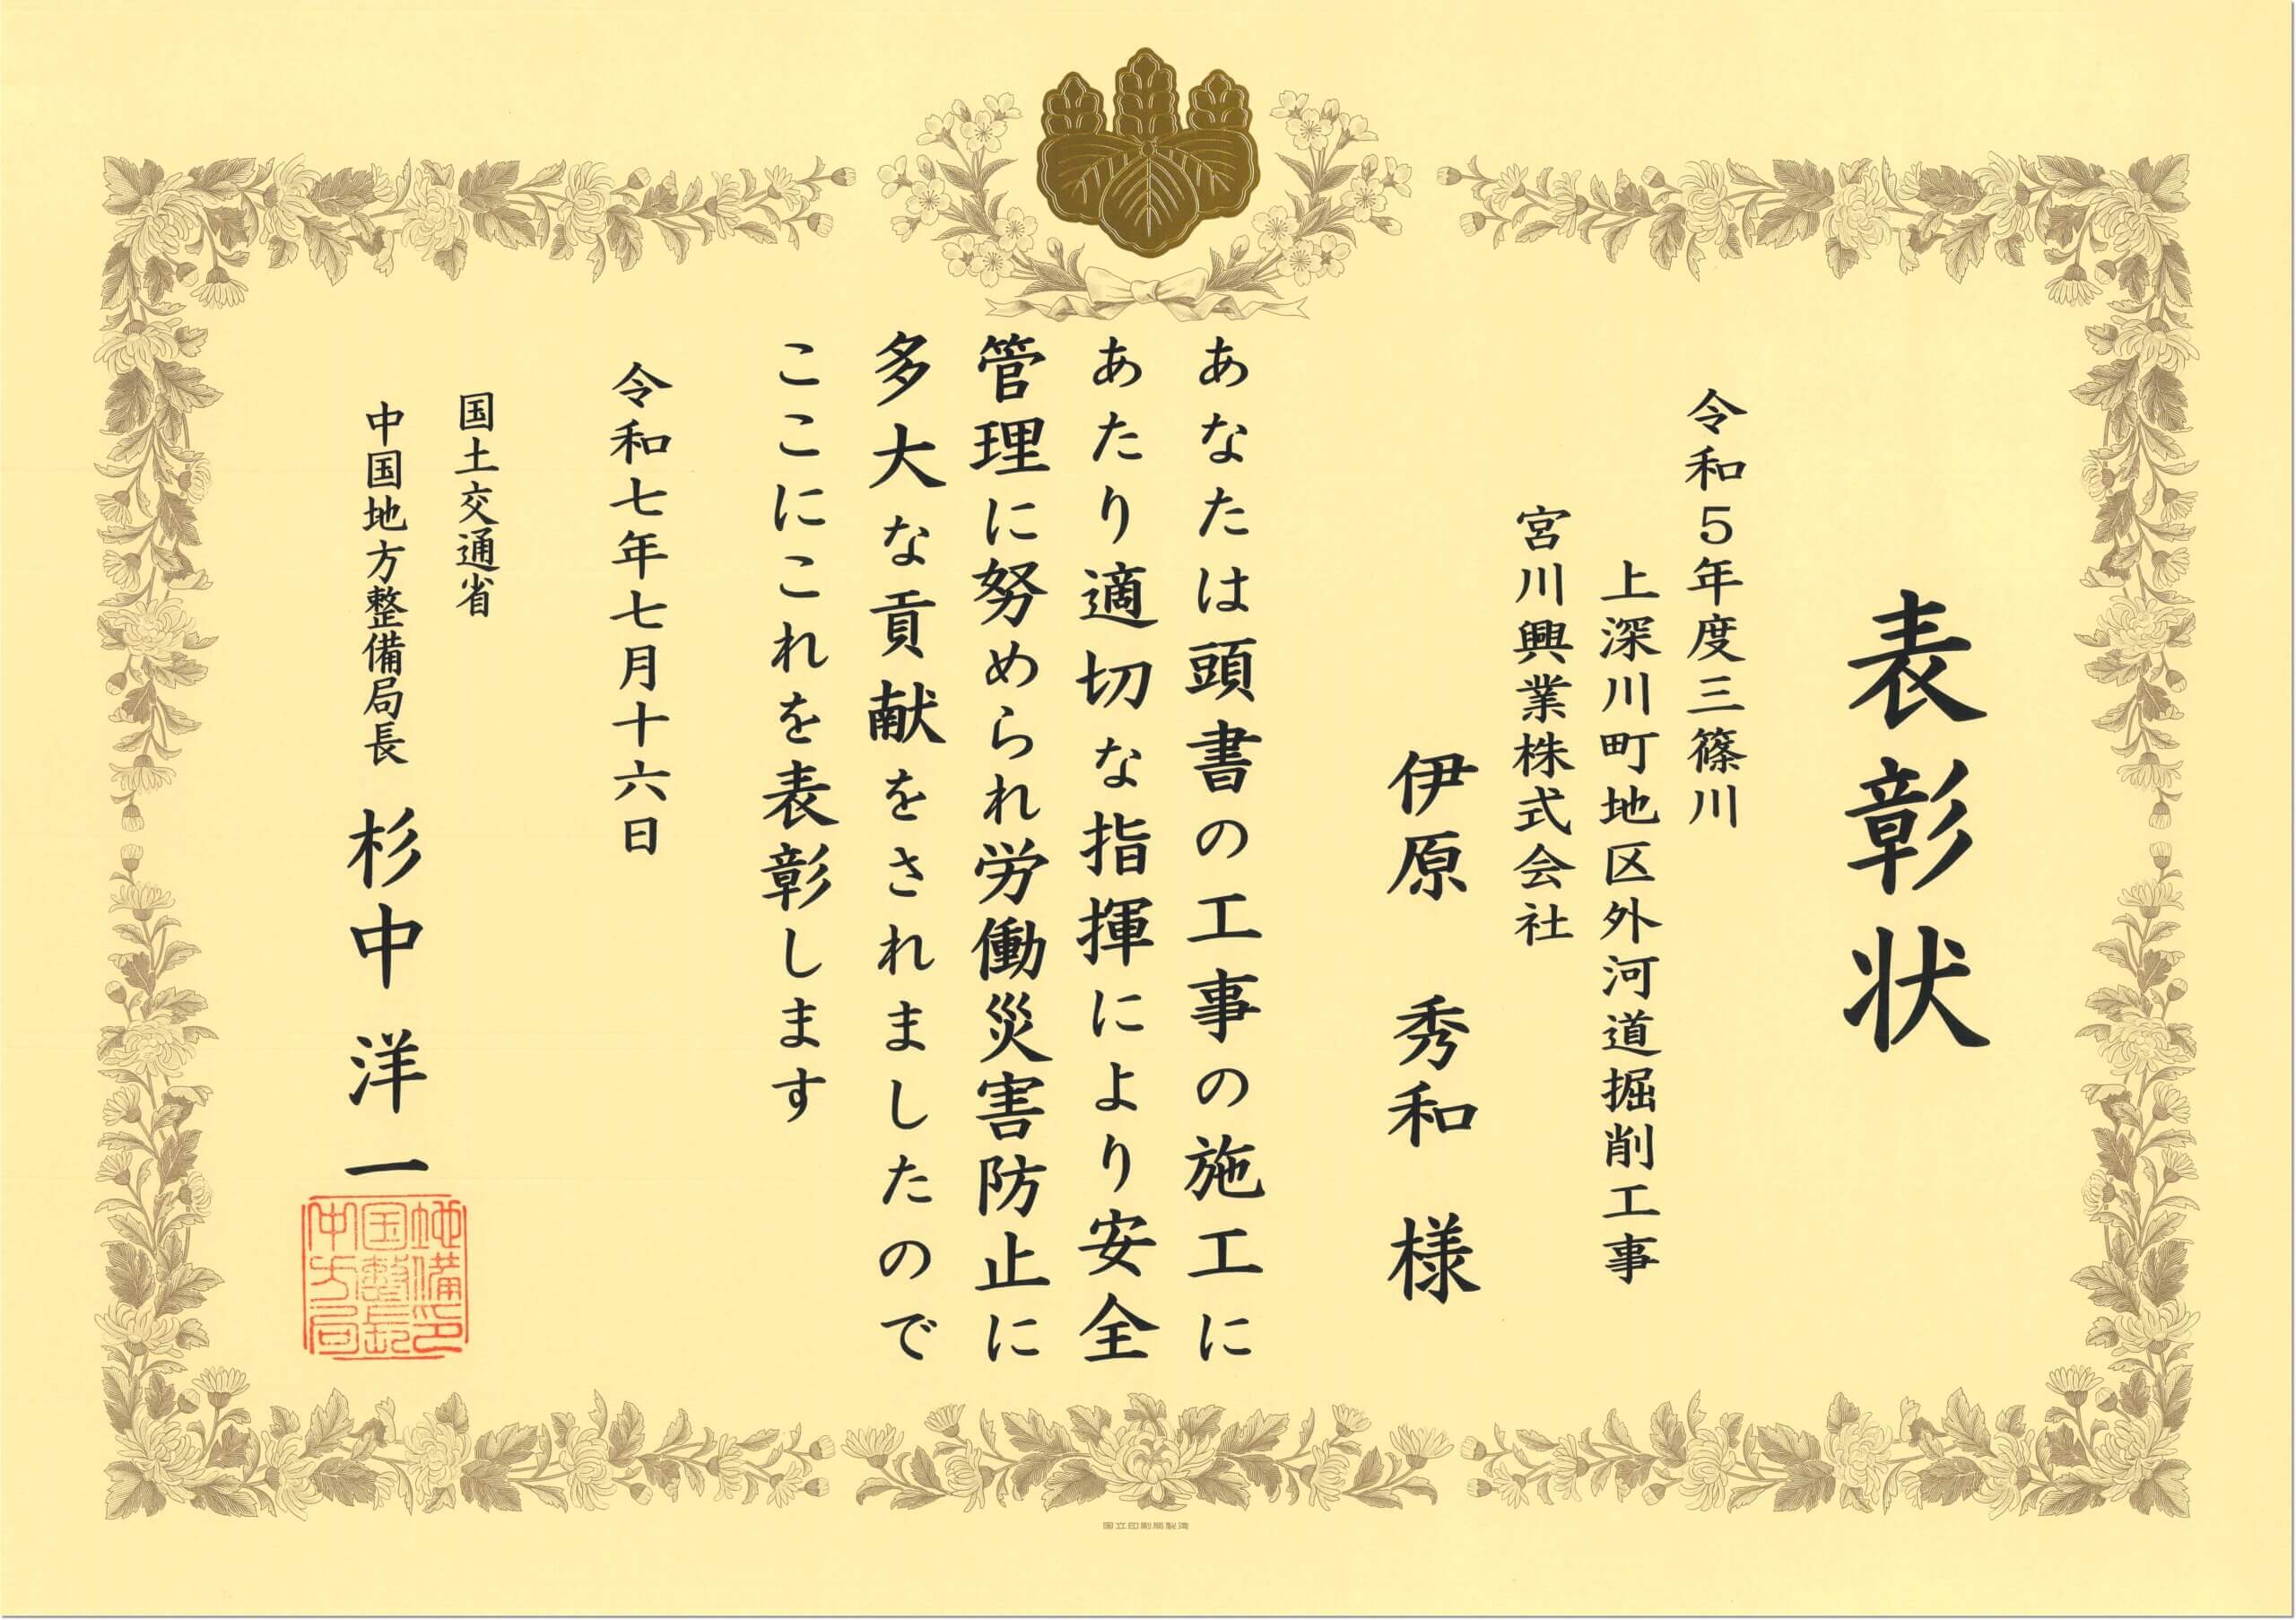 表彰状
令和5年度三篠川
上深川町地区外河道掘削工事
宮川興業株式会社
伊原 秀和 様
あなたは頭書の工事の施工に
あたり適切な指揮により安全
管理に努められ労働災害防止に
多大な貢献をされましたので
ここにこれを表彰します
令和七年七月十六日
国土交通省
中国地方整備局長 杉中 洋一
中国地
方整備
局長印
国立印刷局製造